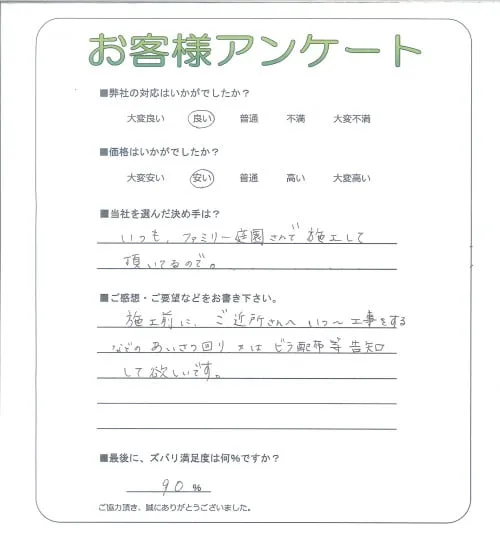 お客様アンケート
■弊社の対応はいかがでしたか？
大変良い 良い 普通 不満 大変不満
■価格はいかがでしたか？
大変安い 安い 普通 高い 大変高い
■当社を選んだ決め手は？
いつも、ファミリー庭園さんで施工して
頂いてるので。
■ご感想・ご要望などをお書き下さい。
施工前に、ご近所さんへ いつ～工事をする
などのあいさつ回り又はビラ配布等告知
して欲しいです。
■最後に、ズバリ満足度は何%ですか？
90 %
ご協力頂き、誠にありがとうございました。